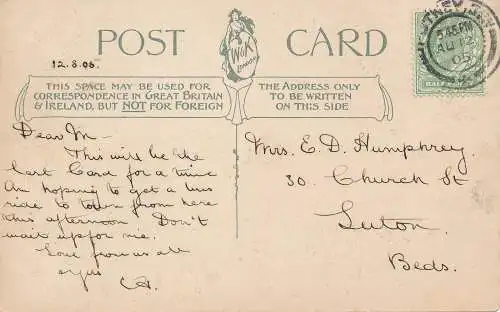 POST CARD
W&K
LONDON
12.8.05.
THIS SPACE MAY BE USED FOR
CORRESPONDENCE IN GREAT BRITAIN
& IRELAND, BUT NOT FOR FOREIGN
THE ADDRESS ONLY
TO BE WRITTEN
ON THIS SIDE
5.45 PM
AU 12
05
HALFPENNY
Dear M—
This will be the
last Card for a time
Am hoping to get a bus
ride to town from here
this afternoon Don't
wait up for me.
Love from us all
A.
Mrs. E. D. Humphrey.
30. Church St
Luton.
Beds.